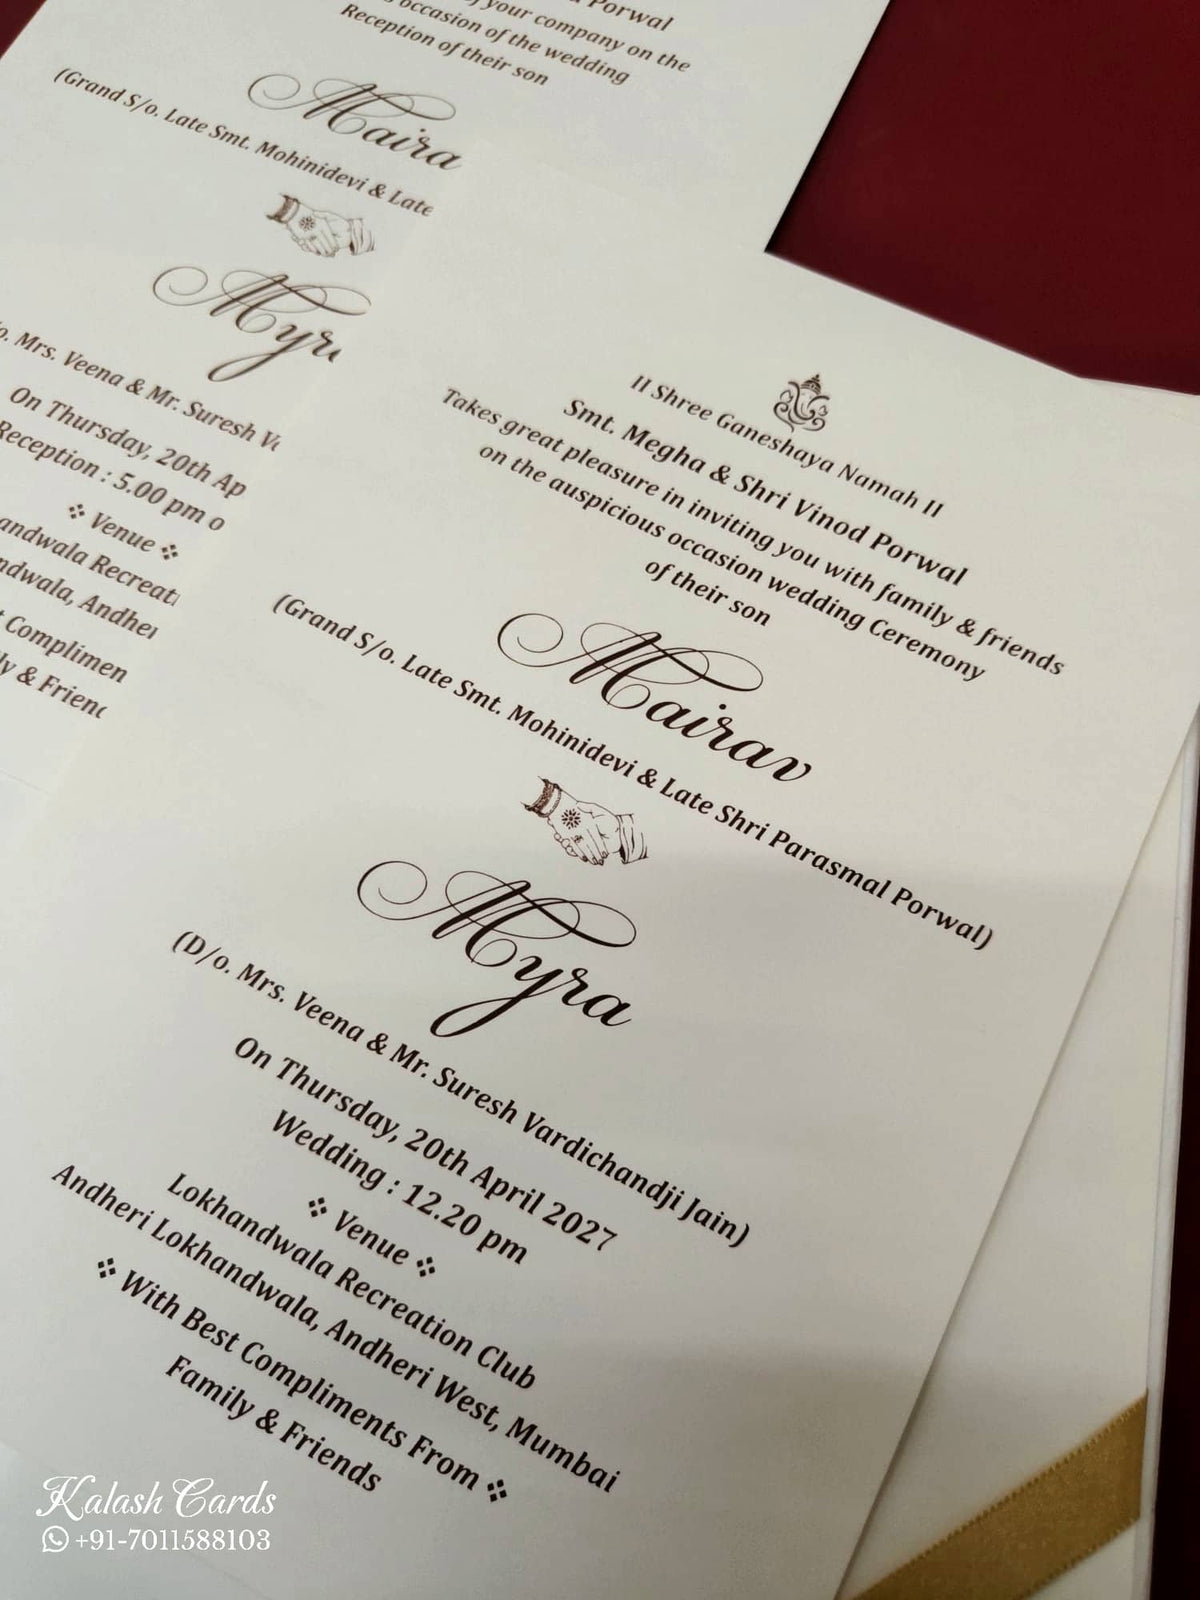 Porwal
of your company on the
occasion of the wedding
Reception of their son
Maira
(Grand S/o. Late Smt. Mohinidevi & Late
Mrs. Veena & Mr. Suresh
On Thursday, 20th Ap
Reception : 5.00 pm o
Venue
With
Complimen
& Frien
II Shree Ganeshaya Namah II
Smt. Megha & Shri Vinod Porwal
Takes great pleasure in inviting you with family & friends
on the auspicious occasion wedding Ceremony
of their son
Mairav
(Grand S/o. Late Smt. Mohinidevi & Late Shri Parasmal Porwal)
Myra
(D/o. Mrs. Veena & Mr. Suresh Vardichandji Jain)
On Thursday, 20th April 2027
Wedding : 12.20 pm
Venue
Lokhandwala Recreation Club
Andheri Lokhandwala, Andheri West, Mumbai
With Best Compliments From
Family & Friends
Kalash Cards
+91-7011588103